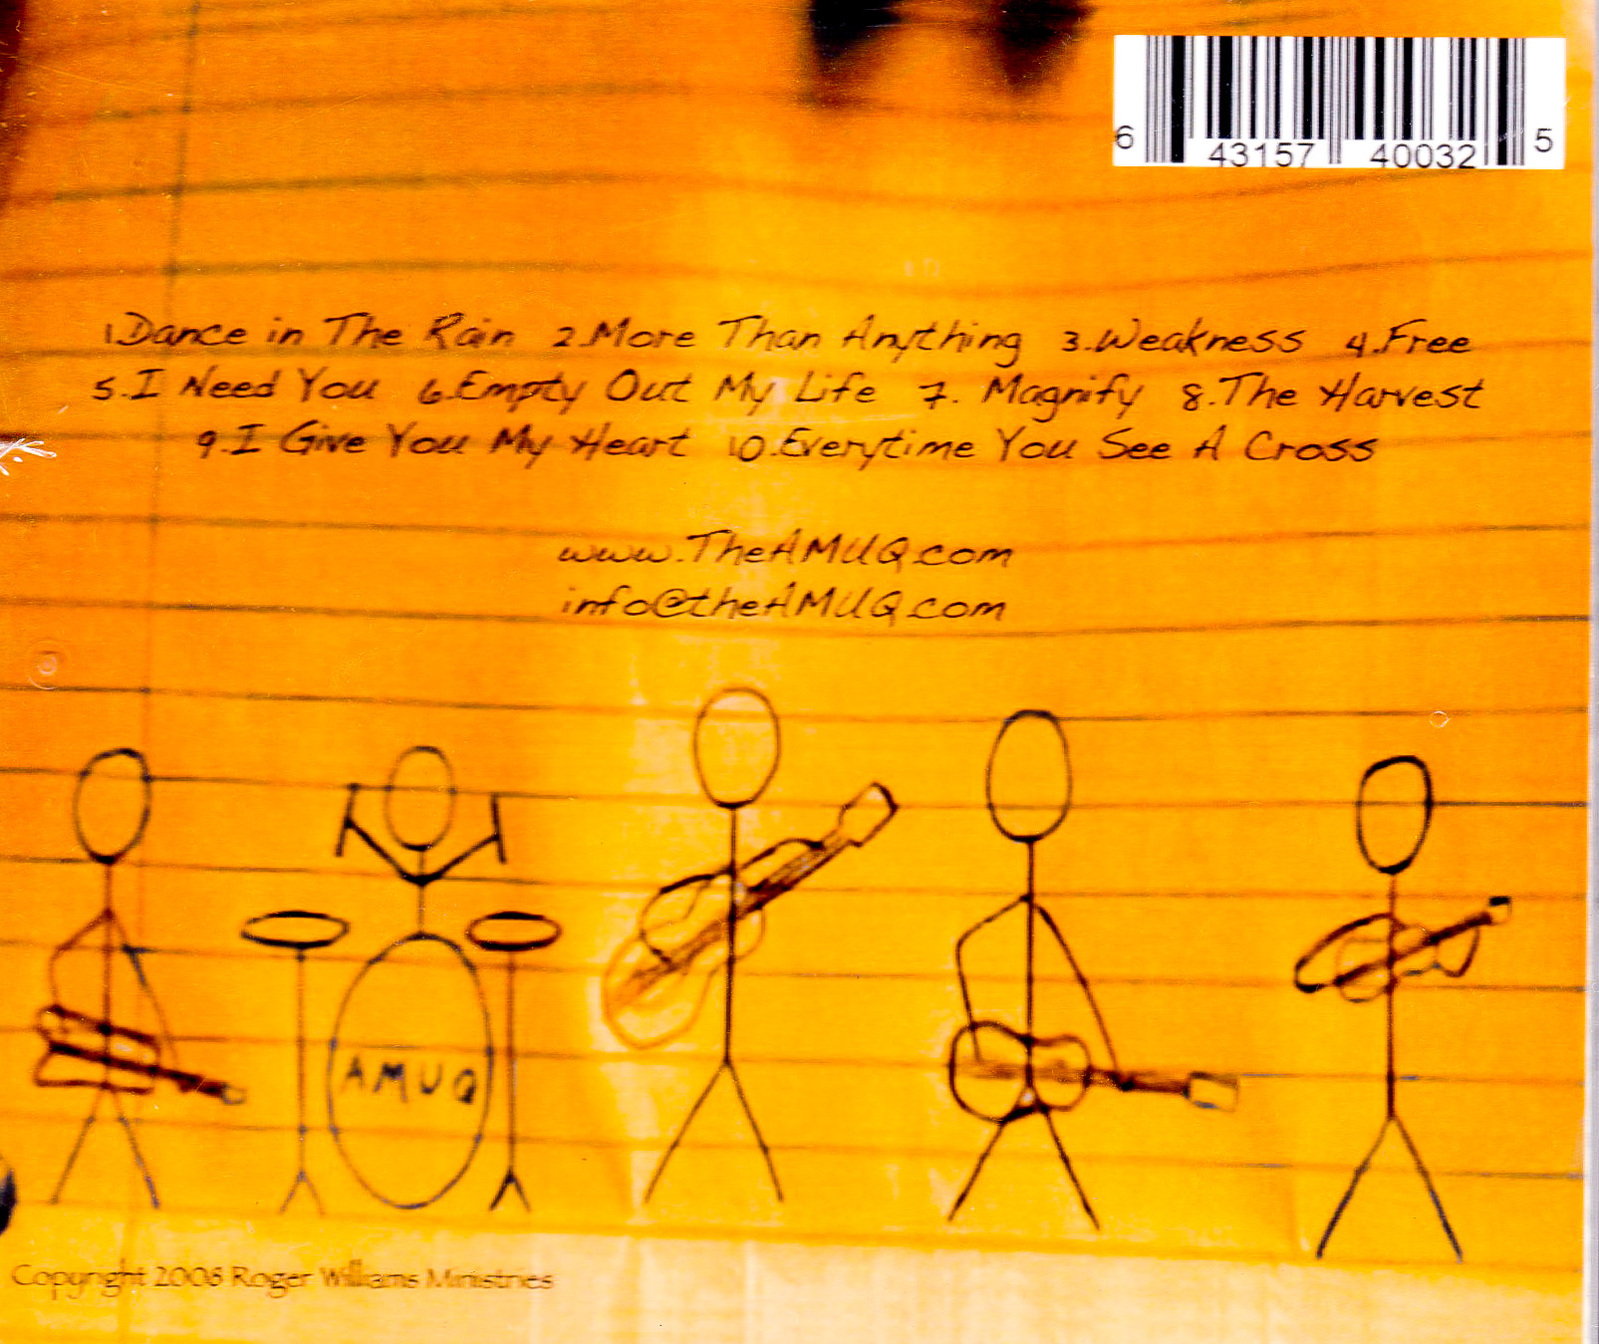 6 43157 40032 5
1.Dance in The Rain 2.More Than Anything 3.Weakness 4.Free
5.I Need You 6.Empty Out My Life 7. Magnify 8.The Harvest
9.I Give You My Heart 10.Everytime You See A Cross
www.TheAMUQ.com
info@theAMUQ.com
AMUQ
Copyright 2008 Roger Williams Ministries